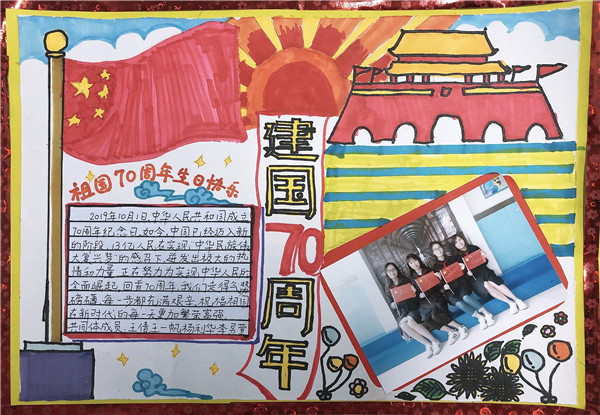 祖国70周年生日快乐
建国70周年
2019年10月1日,中华人民共和国成立
70周年纪念日,如今,中国已经迈入新
的阶段,13亿人民在实现“中华民族伟
大复兴梦”的感召下,迸发出极大的热
情和力量,正在努力为实现中华人民的
全面崛起,回首70周年,我们走得气势
磅礴,每一步都充满艰辛,祝福祖国
在新时代的每一天更加繁荣富强
共同体成员:王倩 王一帆 杨利华 李